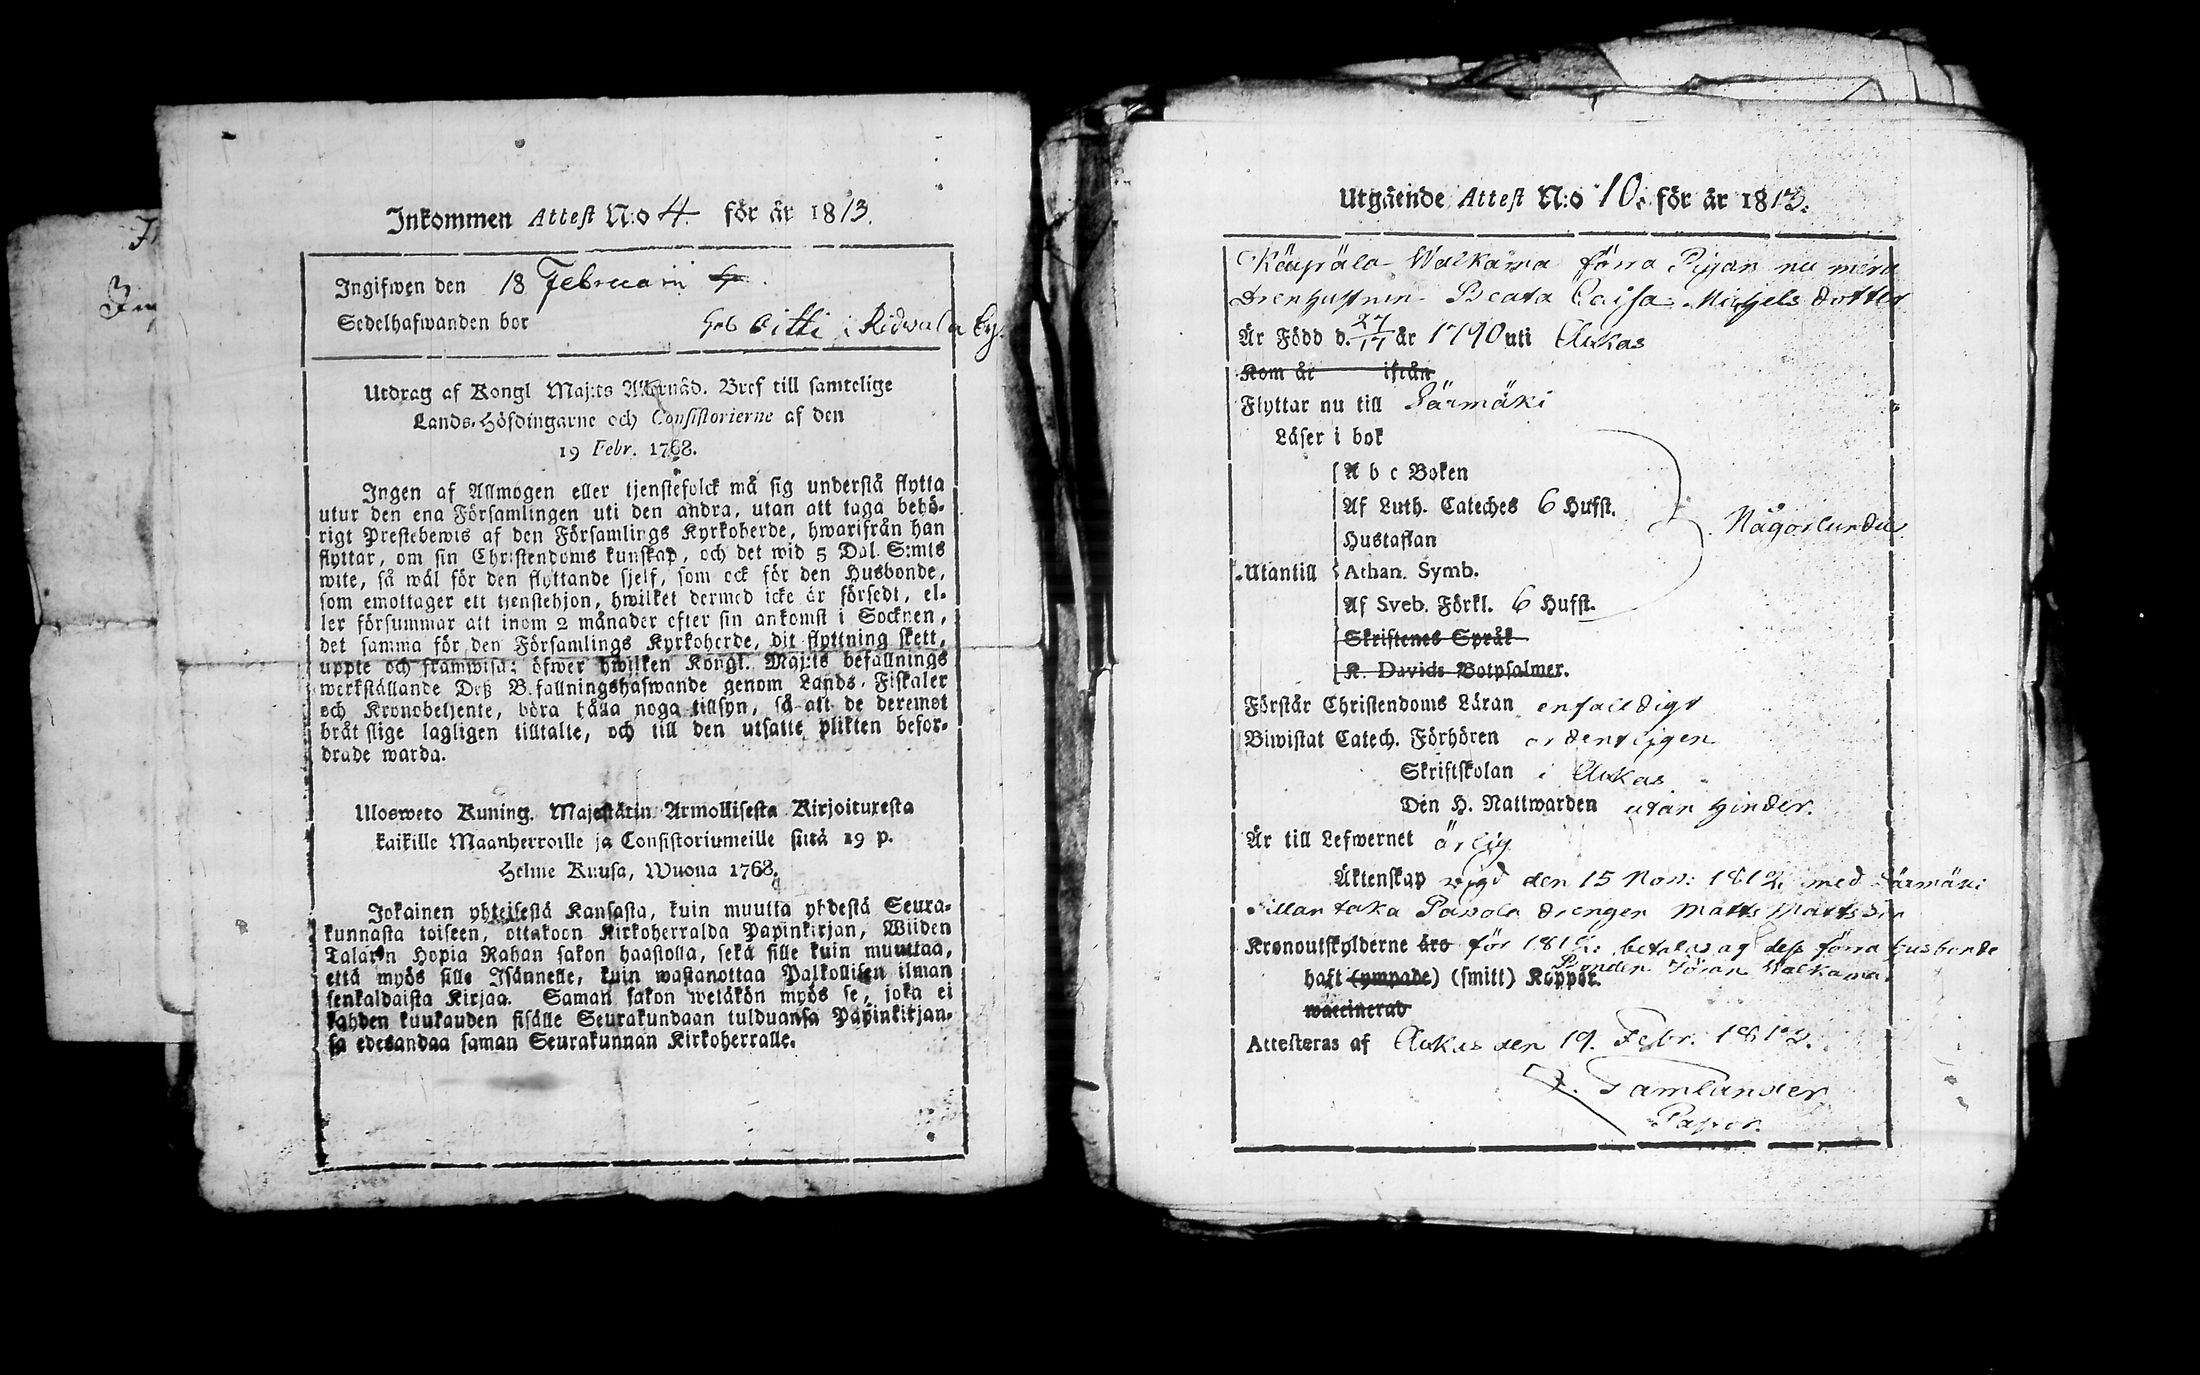 Inkommen Attest N:o 4 för år 1813.
Ingifwen den 18 Februarii
Sedelhafwanden bor hos Oitti i Ridvala by.
Utdrag af Kongl Maj:ts Allernåd. Bref till samtelige
Lands-Höfdingarne och Consistorierne af den
19 Febr. 1768.
Ingen af Allmogen eller tjenstefolck må sig understå flytta
utur den ena Församlingen uti den andra, utan att taga behö-
rigt Prestebewis af den Församlings Kyrkoherde, hwarifrån han
flyttar, om sin Christendoms kunskap, och det wid 5 Dal. S:mts
wite, så wäl för den flyttande sjelf, som ock för den Husbonde,
som emottager ett tjenstehjon, hwilket dermed icke är försedt, el-
ler försummar att inom 2 månader efter sin ankomst i Socknen,
det samma för den Församlings Kyrkoherde, dit flyttning skett,
uppte och framwisa; öfwer hwilken Kongl. Maj:ts befallnings
werkställande Deß B.fallningshafwande genom Lands-Fiskaler
och Kronobetjente, böra hålla noga tillsyn, så att de deremot
bråtslige lagligen tilltalte, och till den utsatte plikten befor-
drade warda.
Uloswето Kuning. Majestätin Armollisesta Kirjoituxesta
kaikille Maanherroille ja Consistoriumeille siitä 19 p.
Helme Kuusa, Wuona 1768.
Jokainen yhteisestä Kansasta, kuin muutta yhdestä Seura-
kunnasta toiseen, ottakoon Kirkoherralda Papinkirjan, Wiiden
Talarin Hopia Rahan sakon haastolla, sekä sille kuin muuttaa,
että myös sille Isännelle, kuin wastanottaa Palkollisen ilman
senkaldaista Kirjaa. Saman sakon wetäkön myös se, joka ei
kahden kuukauden sisälle Seurakundaan tulduansa Papinkirjan-
sa edesandaa saman Seurakunnan Kirkoherralle.
Utgående Attest N:o 10. för år 1813.
Käyrälä Walkama förra Pigan nu mera
Drenghustrun Beata Caisa Michels dotter
Är Född d. 27/17 år 1790 uti Aukas
Kom år ifrån
Flyttar nu till Särmäki
Läser i bok
A b c Boken
Af Luth. Cateches 6 Hufst.
Hustaflan
Någorlunda
Utantill Athan. Symb.
Af Sveb. Förkl. 6 Hufst.
Skriftenes Språk
K. Davids Botpsalmer.
Förstår Christendoms Läran enfaldigt
Biwistat Catech. Förhören ordentligen
Skriftskolan i Aukas
Den H. Nattwarden utan hinder.
Är till Lefwernet ärlig
Äktenskap vigd den 15 Nov: 1812 med Särmäki
Sillantaka Papola drengen Matts Matts son
Kronoutskylderne äro för 1812 betalas af dess förra husbonde
Bonden Jöran Walkama.
haft (ympade) (smitt) Koppor.
waccinerad
Attesteras af Aukas den 19. Febr. 1813.
Tamlander
Pastor.